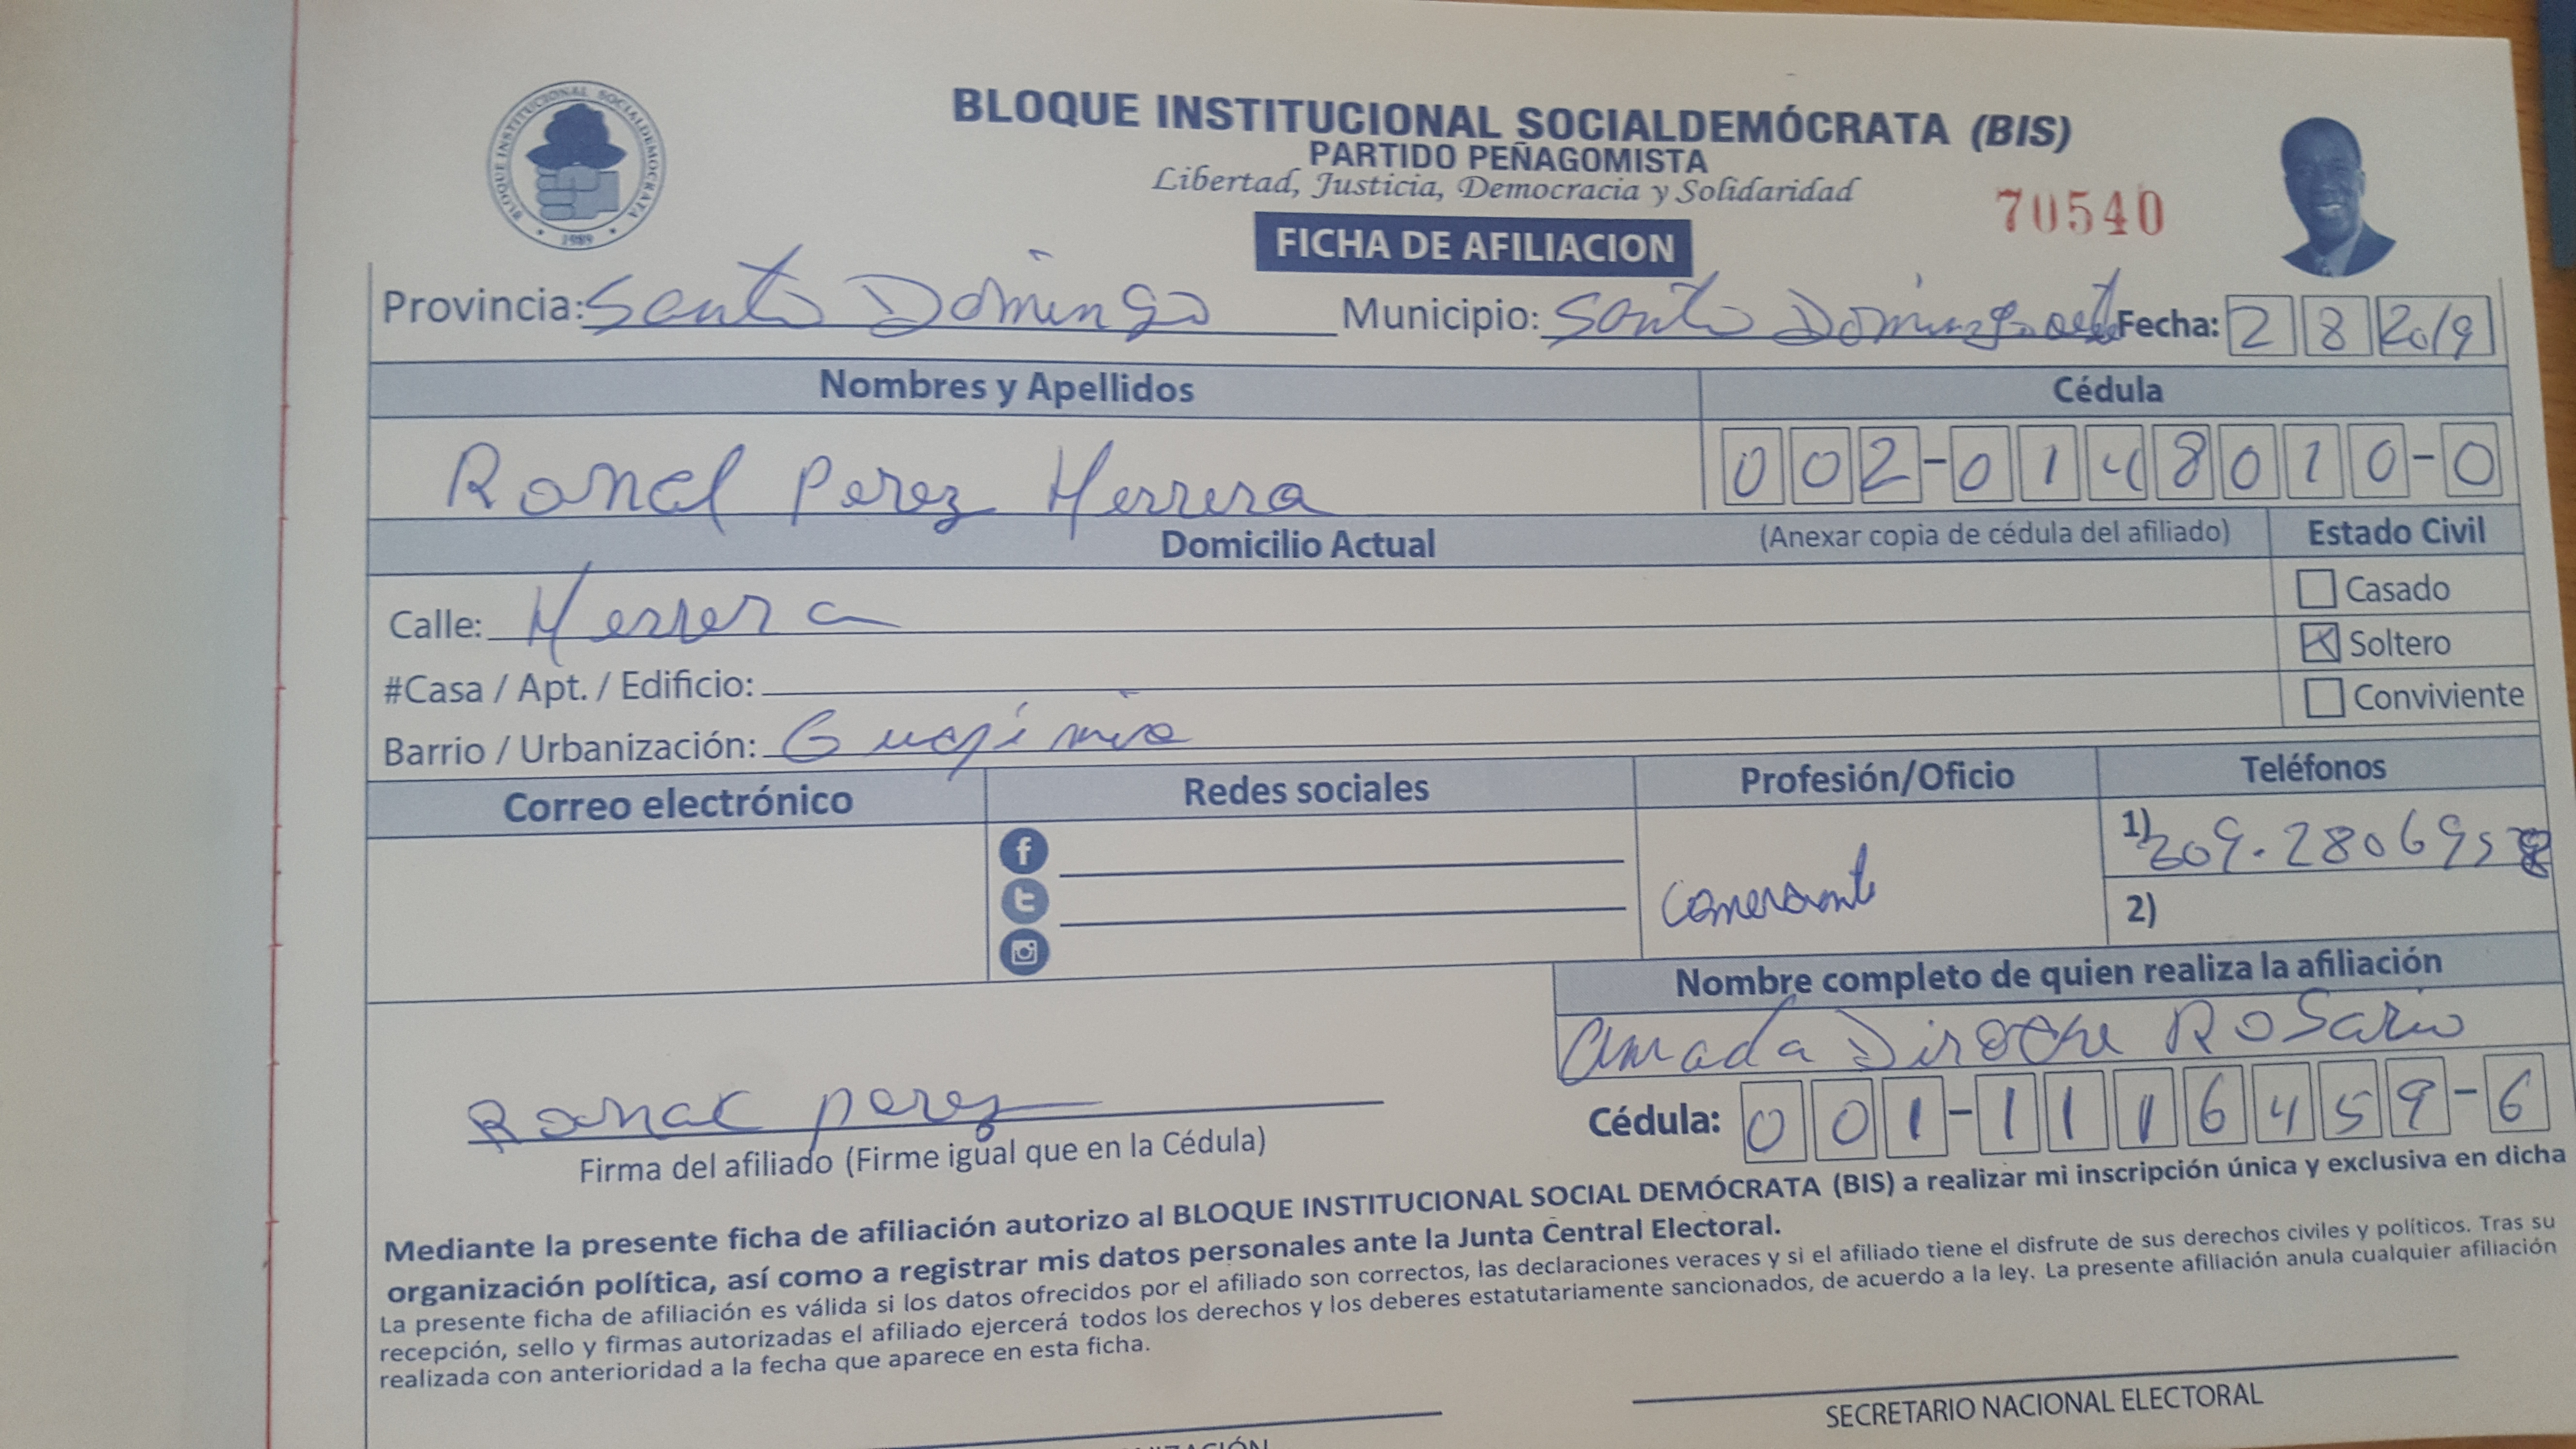 BLOQUE INSTITUCIONAL SOCIALDEMOCRATA
1989
BLOQUE INSTITUCIONAL SOCIALDEMÓCRATA (BIS)
PARTIDO PEÑAGOMISTA
Libertad, Justicia, Democracia y Solidaridad
70540
FICHA DE AFILIACION
Provincia: Santo Domingo Municipio: Santo Domingo Fecha: 2 8 2019
Nombres y Apellidos Cédula
Ronel Perez Herrera 002-0148010-0
Domicilio Actual (Anexar copia de cédula del afiliado) Estado Civil
Calle: Herrera Casado
#Casa / Apt. / Edificio: Soltero
Barrio / Urbanización: Conviviente
Correo electrónico Redes sociales Profesión/Oficio Teléfonos
1)
2)
Nombre completo de quien realiza la afiliación
Amada Diroche Rosario
Cédula: 001-1116459-6
Ronel perez
Firma del afiliado (Firme igual que en la Cédula)
Mediante la presente ficha de afiliación autorizo al BLOQUE INSTITUCIONAL SOCIAL DEMÓCRATA (BIS) a realizar mi inscripción única y exclusiva en dicha
organización política, así como a registrar mis datos personales ante la Junta Central Electoral.
La presente ficha de afiliación es válida si los datos ofrecidos por el afiliado son correctos, las declaraciones veraces y si el afiliado tiene el disfrute de sus derechos civiles y políticos. Tras su
recepción, sello y firmas autorizadas el afiliado ejercerá todos los derechos y los deberes estatutariamente sancionados, de acuerdo a la ley. La presente afiliación anula cualquier afiliación
realizada con anterioridad a la fecha que aparece en esta ficha.
SECRETARIO NACIONAL ELECTORAL